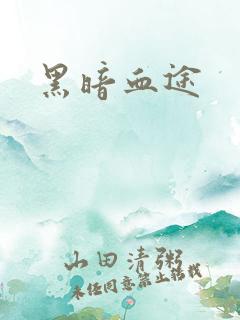 黑暗血途
山田清粥
未经同意禁止转载